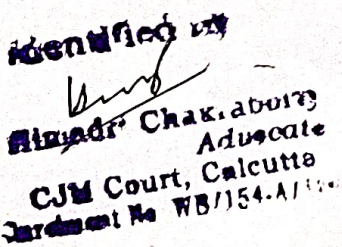 Identified by
Himadri Chakraborty
Advocate
CJM Court, Calcutta
Enrolment No WB/154-A/